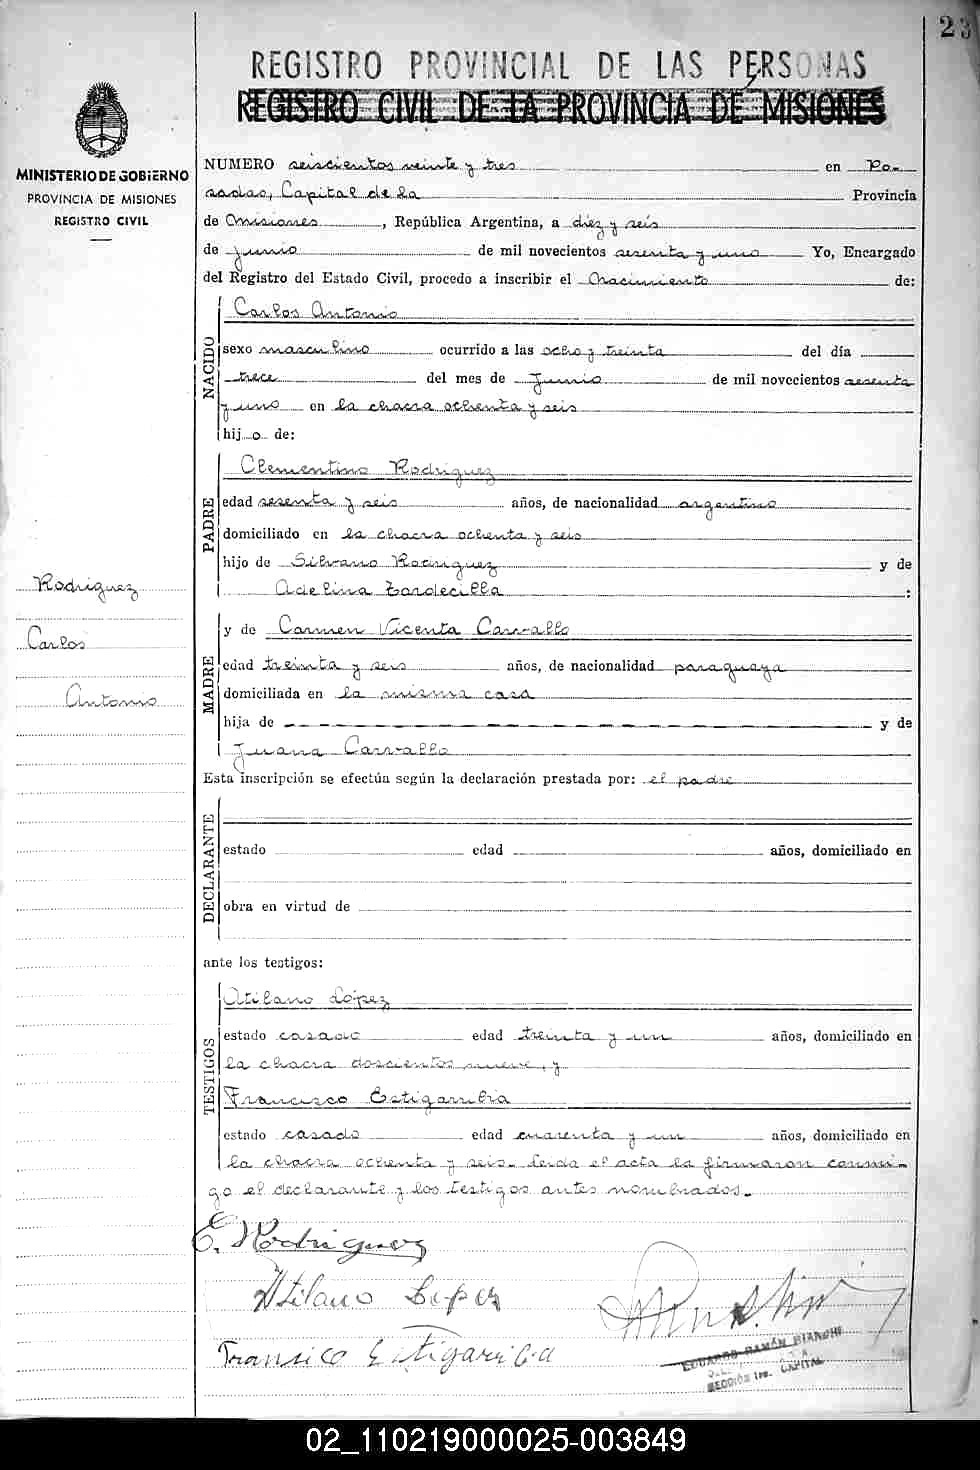 23
REGISTRO PROVINCIAL DE LAS PERSONAS
REGISTRO CIVIL DE LA PROVINCIA DE MISIONES
MINISTERIO DE GOBIERNO
PROVINCIA DE MISIONES
REGISTRO CIVIL
NUMERO seiscientos veinte y tres en Po-
sadas, Capital de la Provincia
de Misiones, República Argentina, a diez y seis
de junio de mil novecientos sesenta y uno Yo, Encargado
del Registro del Estado Civil, procedo a inscribir el Nacimiento de:
NACIDO
Carlos Antonio
sexo masculino ocurrido a las ocho y treinta del día
trece del mes de Junio de mil novecientos sesenta
y uno en la chacra ochenta y seis
hijo de:
PADRE
Clementino Rodriguez
edad sesenta y seis años, de nacionalidad argentino
domiciliado en la chacra ochenta y seis
hijo de Silvano Rodriguez y de
Adelina Zordecilla:
Rodriguez
Carlos
Antonio
MADRE
y de Carmen Vicenta Carvallo
edad treinta y seis años, de nacionalidad paraguaya
domiciliada en la misma casa
hija de - - - - - - - - - - - - - - - y de
Juana Carvallo
Esta inscripción se efectúa según la declaración prestada por: el padre
DECLARANTE
estado edad años, domiciliado en
obra en virtud de
ante los testigos:
TESTIGOS
Atilano López
estado casado edad treinta y un años, domiciliado en
la chacra doscientos nueve, y
Francisco Estigarribia
estado casado edad cuarenta y un años, domiciliado en
la chacra ochenta y seis. Leida el acta la firmaron conmi-
go el declarante y los testigos antes nombrados.-
C. Rodriguez
Atilano Lopez
Fransico Estigarribia
EDUARDO RAMÓN BIANCHI
SECCIÓN 1ra. CAPITAL
02_110219000025-003849